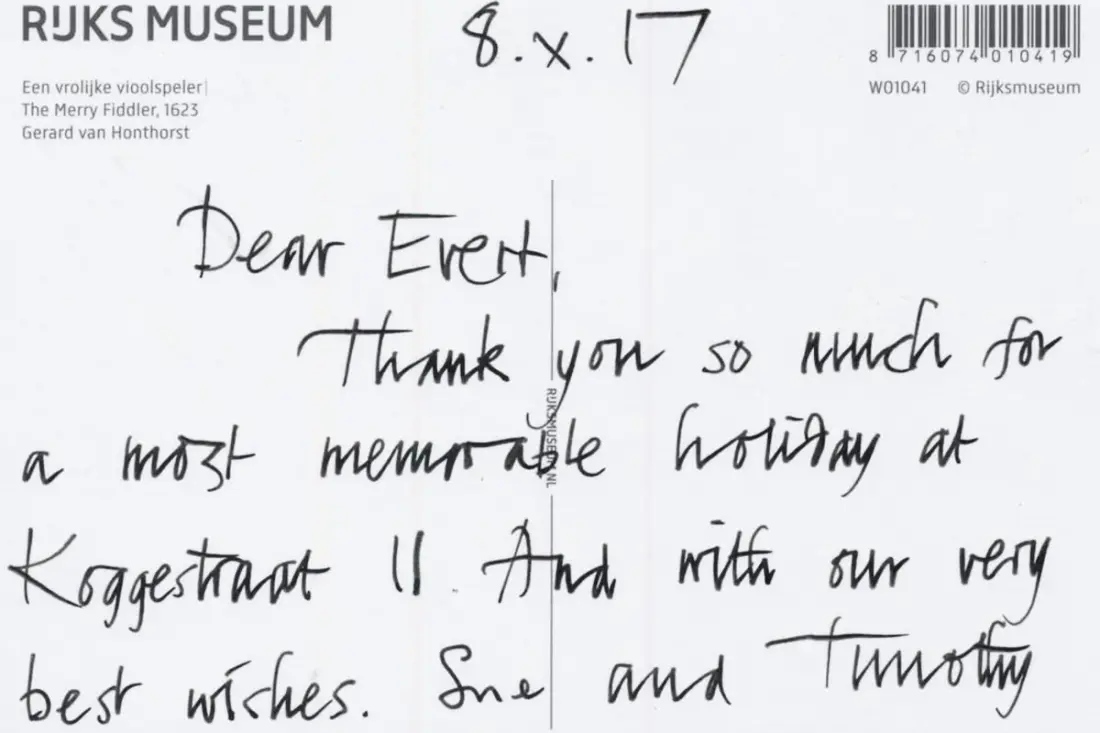 RIJKS MUSEUM
8.x.17
8 716074 010419
Een vrolijke vioolspeler|
The Merry Fiddler, 1623
Gerard van Honthorst
W01041 © Rijksmuseum
Dear Evert,
Thank you so much for
a most memorable holiday at
RIJKSMUSEUM.NL
Koggestraat 11. And with our very
best wishes. Sue and Timothy